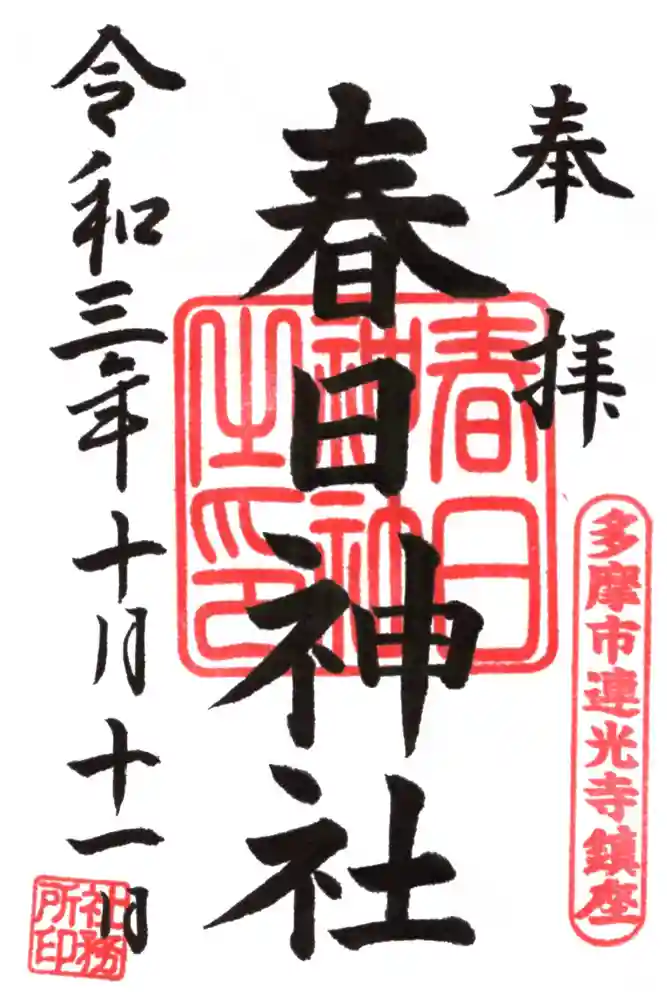 奉拝
多摩市連光寺鎮座
春日神社
春日神社之印
令和三年十月十一日
社務所印